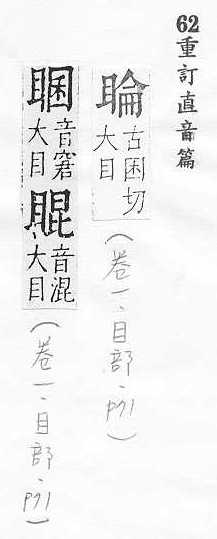 62重訂直音篇
睔
古困切
大目
（卷一、目部、p91）
音窘
大目
音混
大目
（卷一、目部、p91）